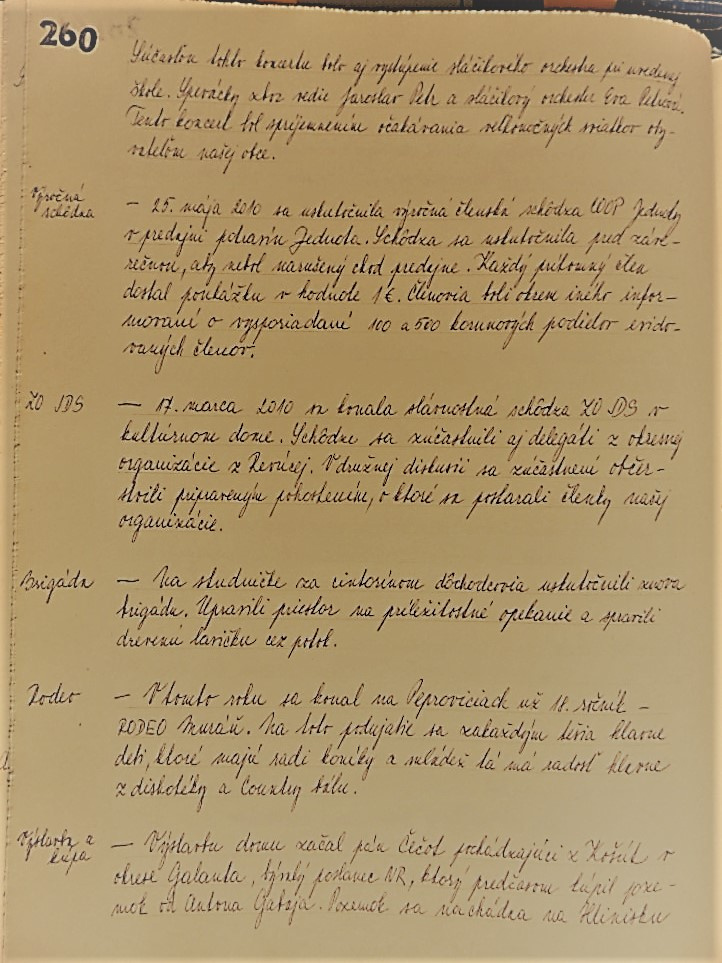 260
Súčasťou tohto koncertu bolo aj vystúpenie sláčikového orchestra pri uvedenej
škole. Spevácky zbor vedie Jaroslav Petr a sláčikový orchester Eva Petrová.
Tento koncert bol spríjemnením očakávania veľkonočných sviatkov oby-
vateľom našej obce.
Výročná
schôdza
— 25. mája 2010 sa uskutočnila výročná členská schôdza COOP Jednoty
v predajni potravín Jednota. Schôdza sa uskutočnila pred záve-
rečnou, aby nebol narušený chod predajne. Každý prítomný člen
dostal poukážku v hodnote 1€. Členovia boli okrem iného infor-
movaní o vysporiadaní 100 a 500 korunových podielov evido-
vaných členov.
ZO JDS
— 17. marca 2010 sa konala slávnostná schôdza ZO JDS v
kultúrnom dome. Schôdze sa zúčastnili aj delegáti z okresnej
organizácie z Revúcej. V družnej diskusii sa zúčastnení občer-
stvili pripraveným pohostením, o ktoré sa postarali členky našej
organizácie.
Brigáda
— Na studničke za cintorínom dôchodcovia uskutočnili znova
brigádu. Upravili priestor na príležitostné opekanie a spravili
drevenú lavičku cez potok.
Rodeo
— V tomto roku sa konal na Peproviciach už 18. ročník -
RODEO Muráň. Na toto podujatie sa zakaždým tešia hlavne
deti, ktoré majú radi koníky a mládež tá má radosť hlavne
z diskotéky a Country bálu.
Výstavba a
kúpa
— Výstavbu domu začal pán Čečot pochádzajúci z Košút v
okrese Galanta, bývalý poslanec NR, ktorý predčasom kúpil poze-
mok od Antona Gabaja. Pozemok sa nachádza na Hlinisku